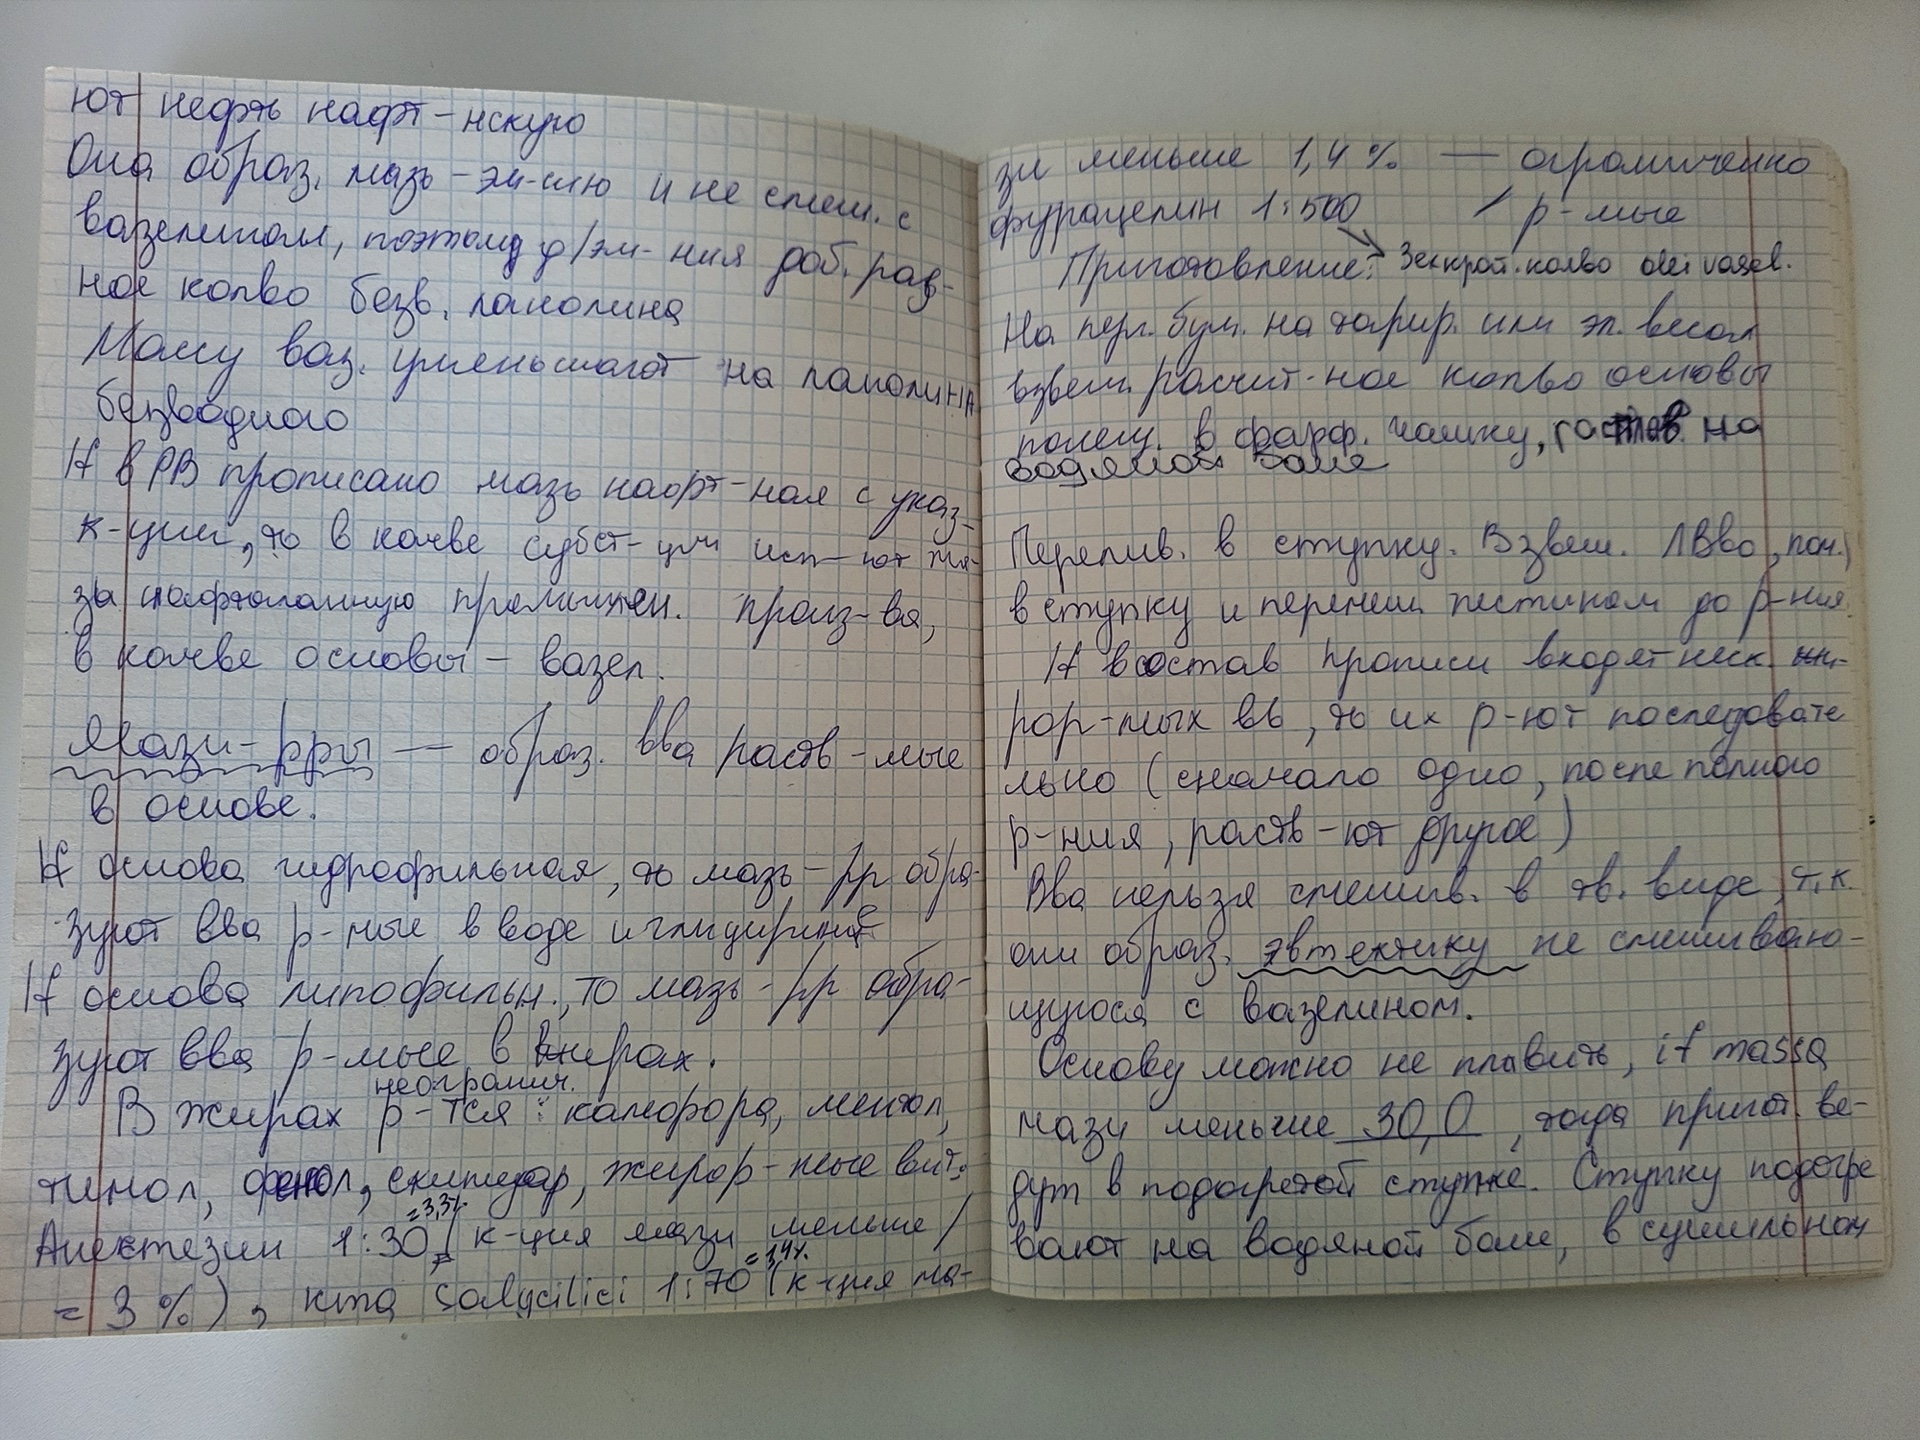 ют нефть нафт-нскую
Она образ. мазь-эм-сию и не смеш. с
вазелином, поэтому д/эм-ния доб. рав-
ное колво безв. ланолина
Массу ваз. уменьшают на ланолина
безводного
If в РВ прописано мазь нафт-ная с указ-
к-ции, то в качве субст-ции исп-ют ма-
зь нафталанную промышлен. произ-ва,
в качве основы - вазел.
Мази-рры — образ. вва раств-мые
в основе.
If основа гидрофильная, то мазь-рр обра-
зуют вва р-мые в воде и глицерине
If основа липофильн., то мазь-рр обра-
зуют вва р-мые в жирах.
неогранич.
В жирах р-тся: камфора, ментол,
тимол, фенол, скипидар, жирор-мые вит.
=3,3%
Анестезин 1:30 (к-ция мази меньше/
=1,4%
= 3%), кта salycilici 1:70 (к-ция ма-
зи меньше 1,4% — ограниченно
фурацилин 1:500 / р-мые
Приготовление: кратн. колво olei vasel.
На пер. бум. на тарир. или эл. весах
взвеш. расчит-ное колво основы
помещ. в фарф. чашку, на
водяной бане
Перелив. в ступку. Взвеш. ЛВво, пом.
в ступку и перемеш. пестиком до р-ния.
If в состав прописи входят неск. жи-
рор-мых вв, то их р-ют последовате
льно (сначала одно, после полного
р-ния, раств-ют другое)
Вва нельзя смешив. в тв. виде, т.к.
они образ. эвтектику не смешиваю-
щуюся с вазелином.
Основу можно не плавить, if massa
мази меньше 30,0, тогда пригот. ве-
дут в подогретой ступке. Ступку подогре
вают на водяной бане, в сушильном